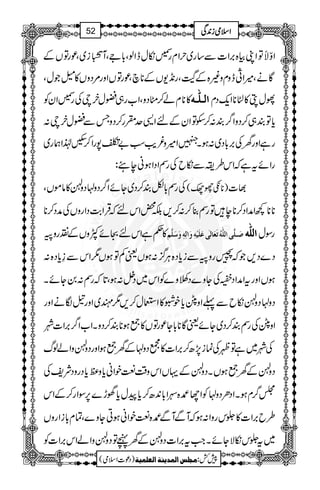 52
اسلامی زندگی
اوّلاً تو اپنی بیاہ برات سے ساری حرام رسمیں نکال ڈالو، باجے، آتشبازی، عورتوں کے
گانے، میراثی ڈوم وغیرہ کے گیت، رنڈیوں کے ناچ، عورتوں اور مردوں کا میل جول،
پھول پتی کا لٹانا ایک دم اللہ کا نام لے کر مٹا دو، اب رہی فضول خرچی کی رسمیں ان کو
یا تو بند ہی کر دو اگر بند نہ کر سکو تو ان کے لئے ایسی حد مقرر کر دو جس سے فضول خرچی نہ
رہے اور گھر کی بربادی نہ ہو۔ جنہیں امیر و غریب سب بے تکلف پورا کر سکیں لہٰذا ہماری
رائے یہ ہے کہ اس طریقہ سے نکاح کی رسم ادا ہونی چاہئے:
بھات (نانکی چھوچھک) کی رسم بالکل بند کر دی جائے اگر دولہا دلہن کا ماموں،
نانا کچھ امداد کرنا چاہے تو رسم بنا کر نہ کرے بلکہ محض اس لئے کہ قرابت داروں کی مدد کرنا
رسول اللہ صَلَّى اللهُ تَعَالٰی عَلَیْهِ وَاٰلِهٖ وَسَلَّمَ کا حکم ہے اس لئے بجائے کپڑوں کے نقد روپیہ
دے دیں جو کہ پچیس روپیہ سے زیادہ ہرگز نہ ہوں یعنی کم تو ہوں مگر اس سے زیادہ نہ
ہوں اور یہ امداد خفیہ کی جاوے دکھلاوے کو اس میں دخل نہ ہو تاکہ رسم نہ بن جائے۔
دولہا دولہن نکاح سے پہلے اُبٹن یا خوشبو کا استعمال کریں مگر مہندی اور تیل لگانے اور
اُبٹن کی رسم بند کر دی جائے یعنی گانا باجا عورتوں کا جمع ہونا بند کر دو۔ اب اگر برات شہر
کی شہر میں ہے تو ظہر کی نماز پڑھ کر برات کا مجمع دولہا کے گھر جمع ہو اور دولہن والے لوگ
دولہن کے گھر جمع ہوں۔ دولہن کے یہاں اس وقت نعت خوانی یا وعظ یا درود شریف کی
مجلس گرم ہو۔ ادھر دولہا کو اچھا عمدہ سہرا باندھ کر یا پیدل یا گھوڑے پر سوار کر کے اس
طرح برات کا جلوس روانہ ہو کہ آگے آگے عمدہ نعت خوانی ہوتی جاوے، تمام بازاروں
میں یہ جلوس نکالا جائے۔ جب یہ برات دولہن کے گھر پہنچے تو دولہن والے اس برات کو
پیش کش: مجلس المدینۃ العلمیۃ (دعوت اسلامی)